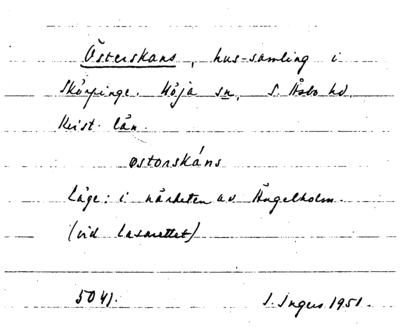 Österskans, hus-samling i
Skörpinge. Höja sn, S. Åsbo hd.
Krist. län.
østorskáns
Läge: i närheten av Ängelholm.
(vid lasarettet)
5041. I. Ingers 1951.